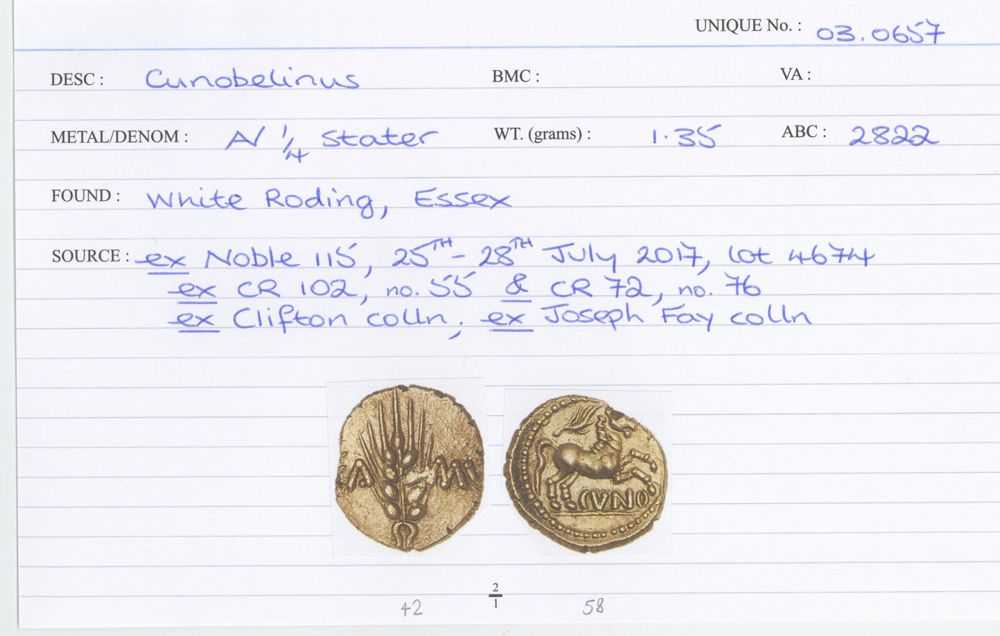 UNIQUE No. : 03.0657
DESC : Cunobelinus BMC : VA :
METAL/DENOM : A/ 1/4 stater WT. (grams) : 1.35 ABC : 2822
FOUND : White Roding, Essex
SOURCE : ex Noble 115, 25TH - 28TH July 2017, lot 4674
ex CR 102, no. 55 & CR 72, no. 76
ex Clifton colln; ex Joseph Fay colln
CA MV
CVNO
2/1
42 58